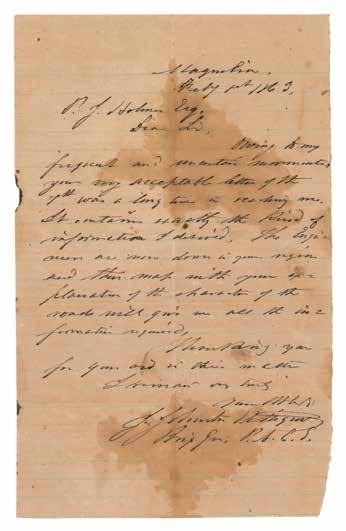 Magnolia,
Feby 1st 1863,
P. J. Holmes Esq,
Dear Sir,
Owing to my
frequent and uncertain movements
your very acceptable letter of the
was a long time in reaching me.
It contains exactly the kind of
information I desired. The Engi-
neers are now down in your region
and their map with your ex-
planation of the character of the
roads will give me all the in-
formation required,
Thanking you
for your aid in this matter
I remain very truly
Your Obt. St.
J. Johnston Pettigrew
Brig Gen. P.A.C.S.